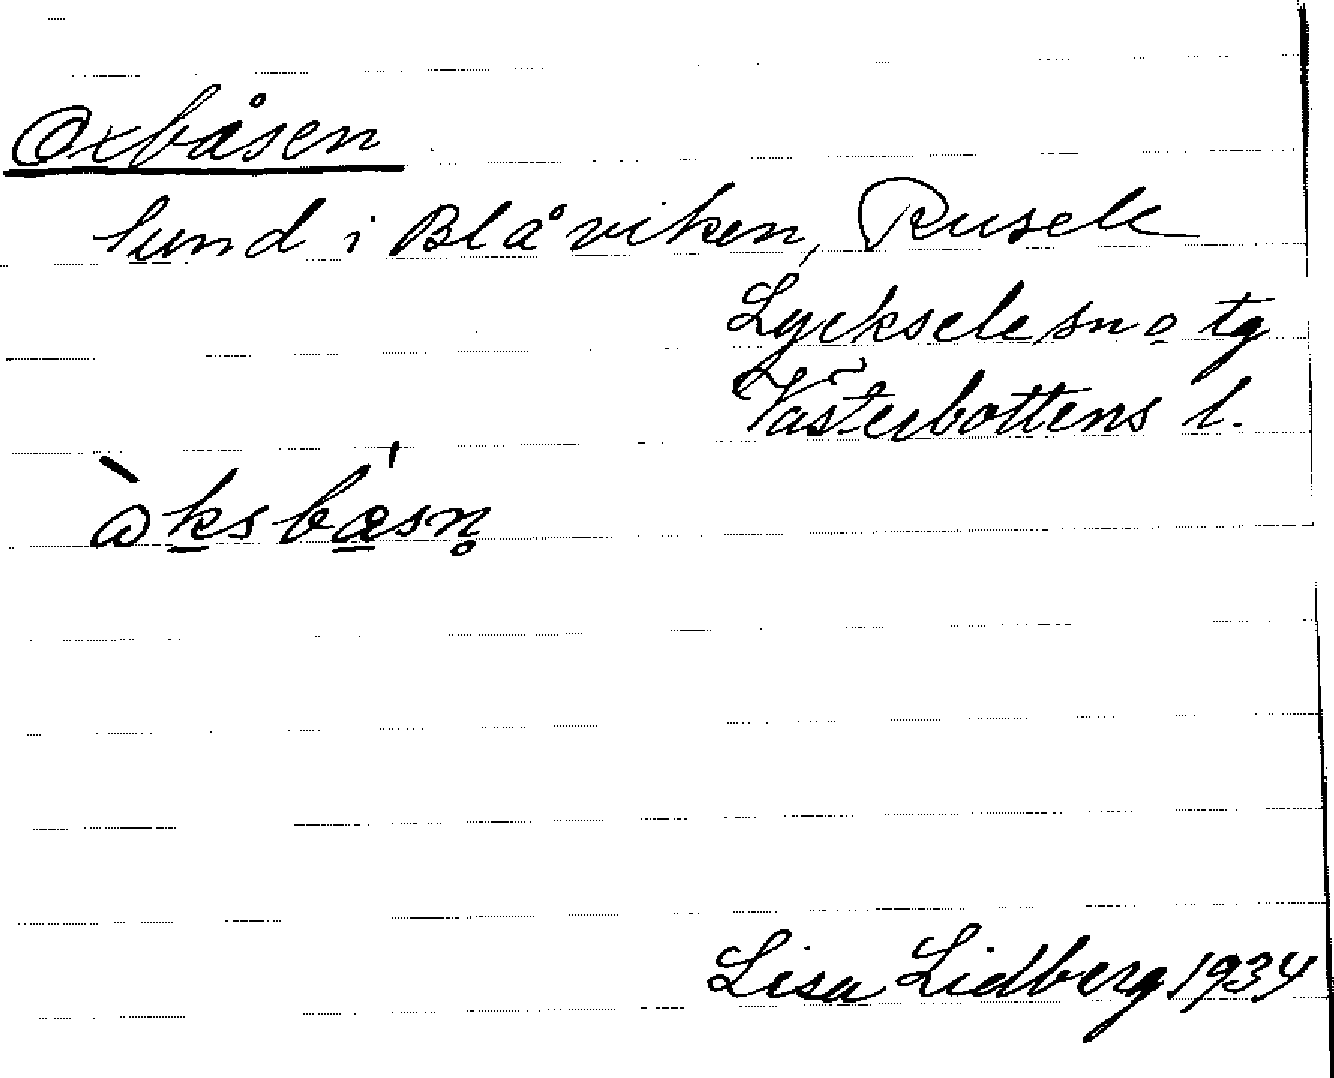 Oxbåsen
Sund i Blåviken, Rusele
Lycksele sn o tg
Västerbottens l.
Lisa Lidberg 1934